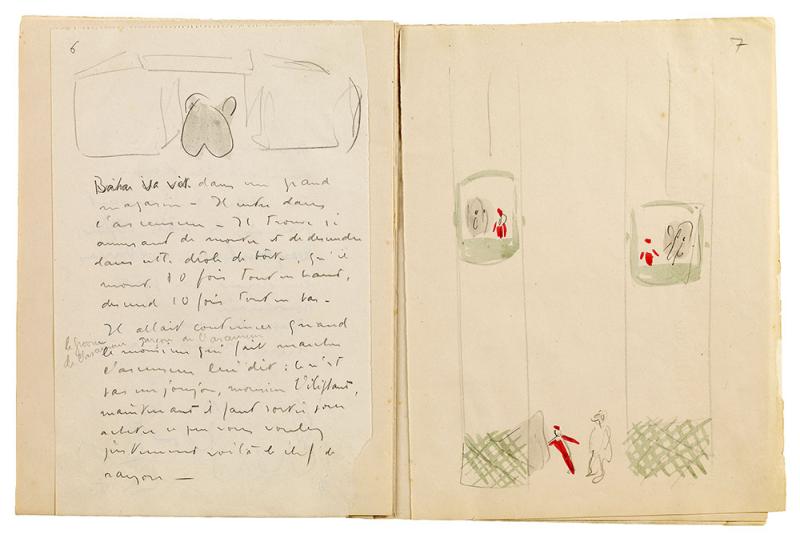 6
Babar va vite dans un grand
magasin – Il entre dans
l'ascenseur – Il trouve si
amusant de monter et de descendre
dans cette drôle de boîte, qu'il
monte 10 fois tout en haut,
descend 10 fois tout en bas –
Il allait continuer quand
le groom garçon de l'ascenseur
de l'ascenseur
le monsieur qui fait marcher
l'ascenseur lui dit : ce n'est
pas un joujou, monsieur l'éléphant,
maintenant il faut sortir pour
acheter ce que vous voulez
justement voilà le chef de
rayon —
7